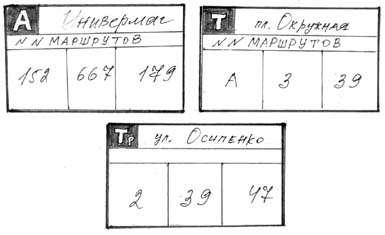 А Универмаг
NN МАРШРУТОВ
152 667 179
Т пл. Окружная
NN МАРШРУТОВ
А 3 39
Тр ул. Осипенко
2 39 47